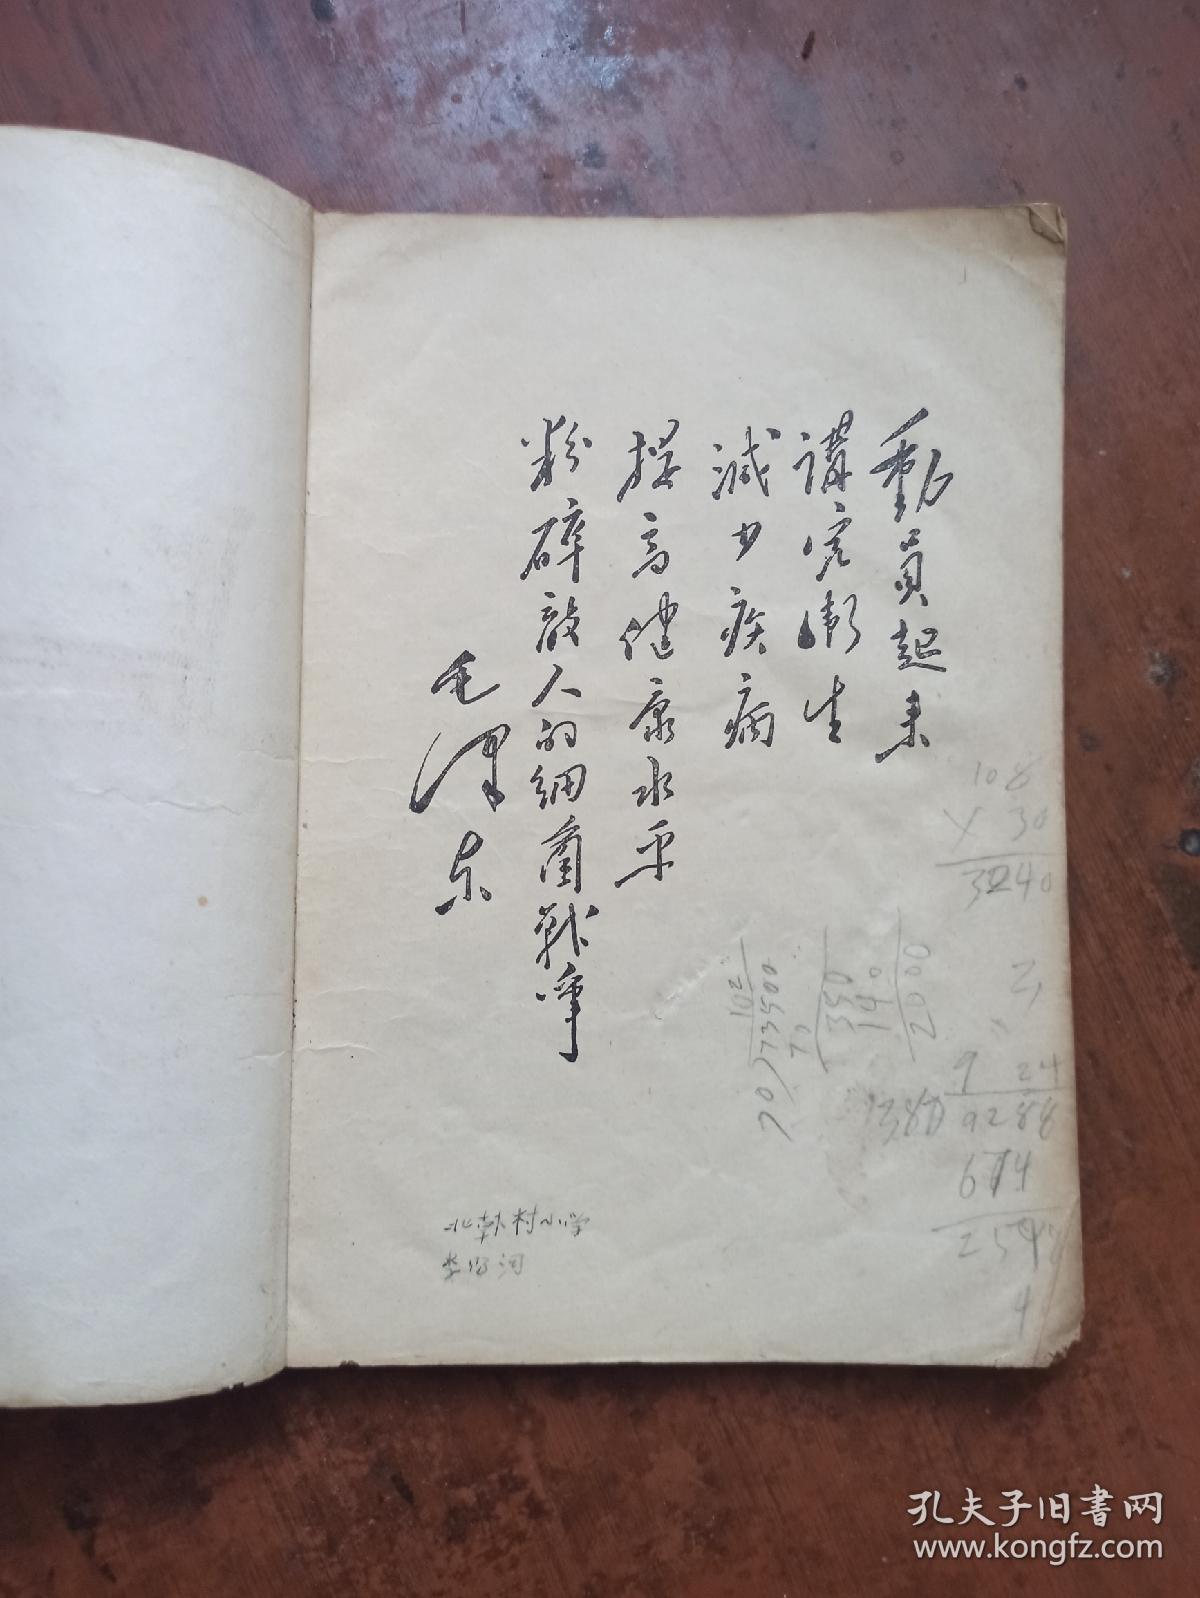 動員起来
講究衛生
減少疾病
提高健康水平
粉碎敌人的细菌戰争
毛泽东
108
× 30
3240
102
70)73500
70
350
140
2000
9 24
9288
北韩村小学
孔夫子旧书网
www.kongfz.com